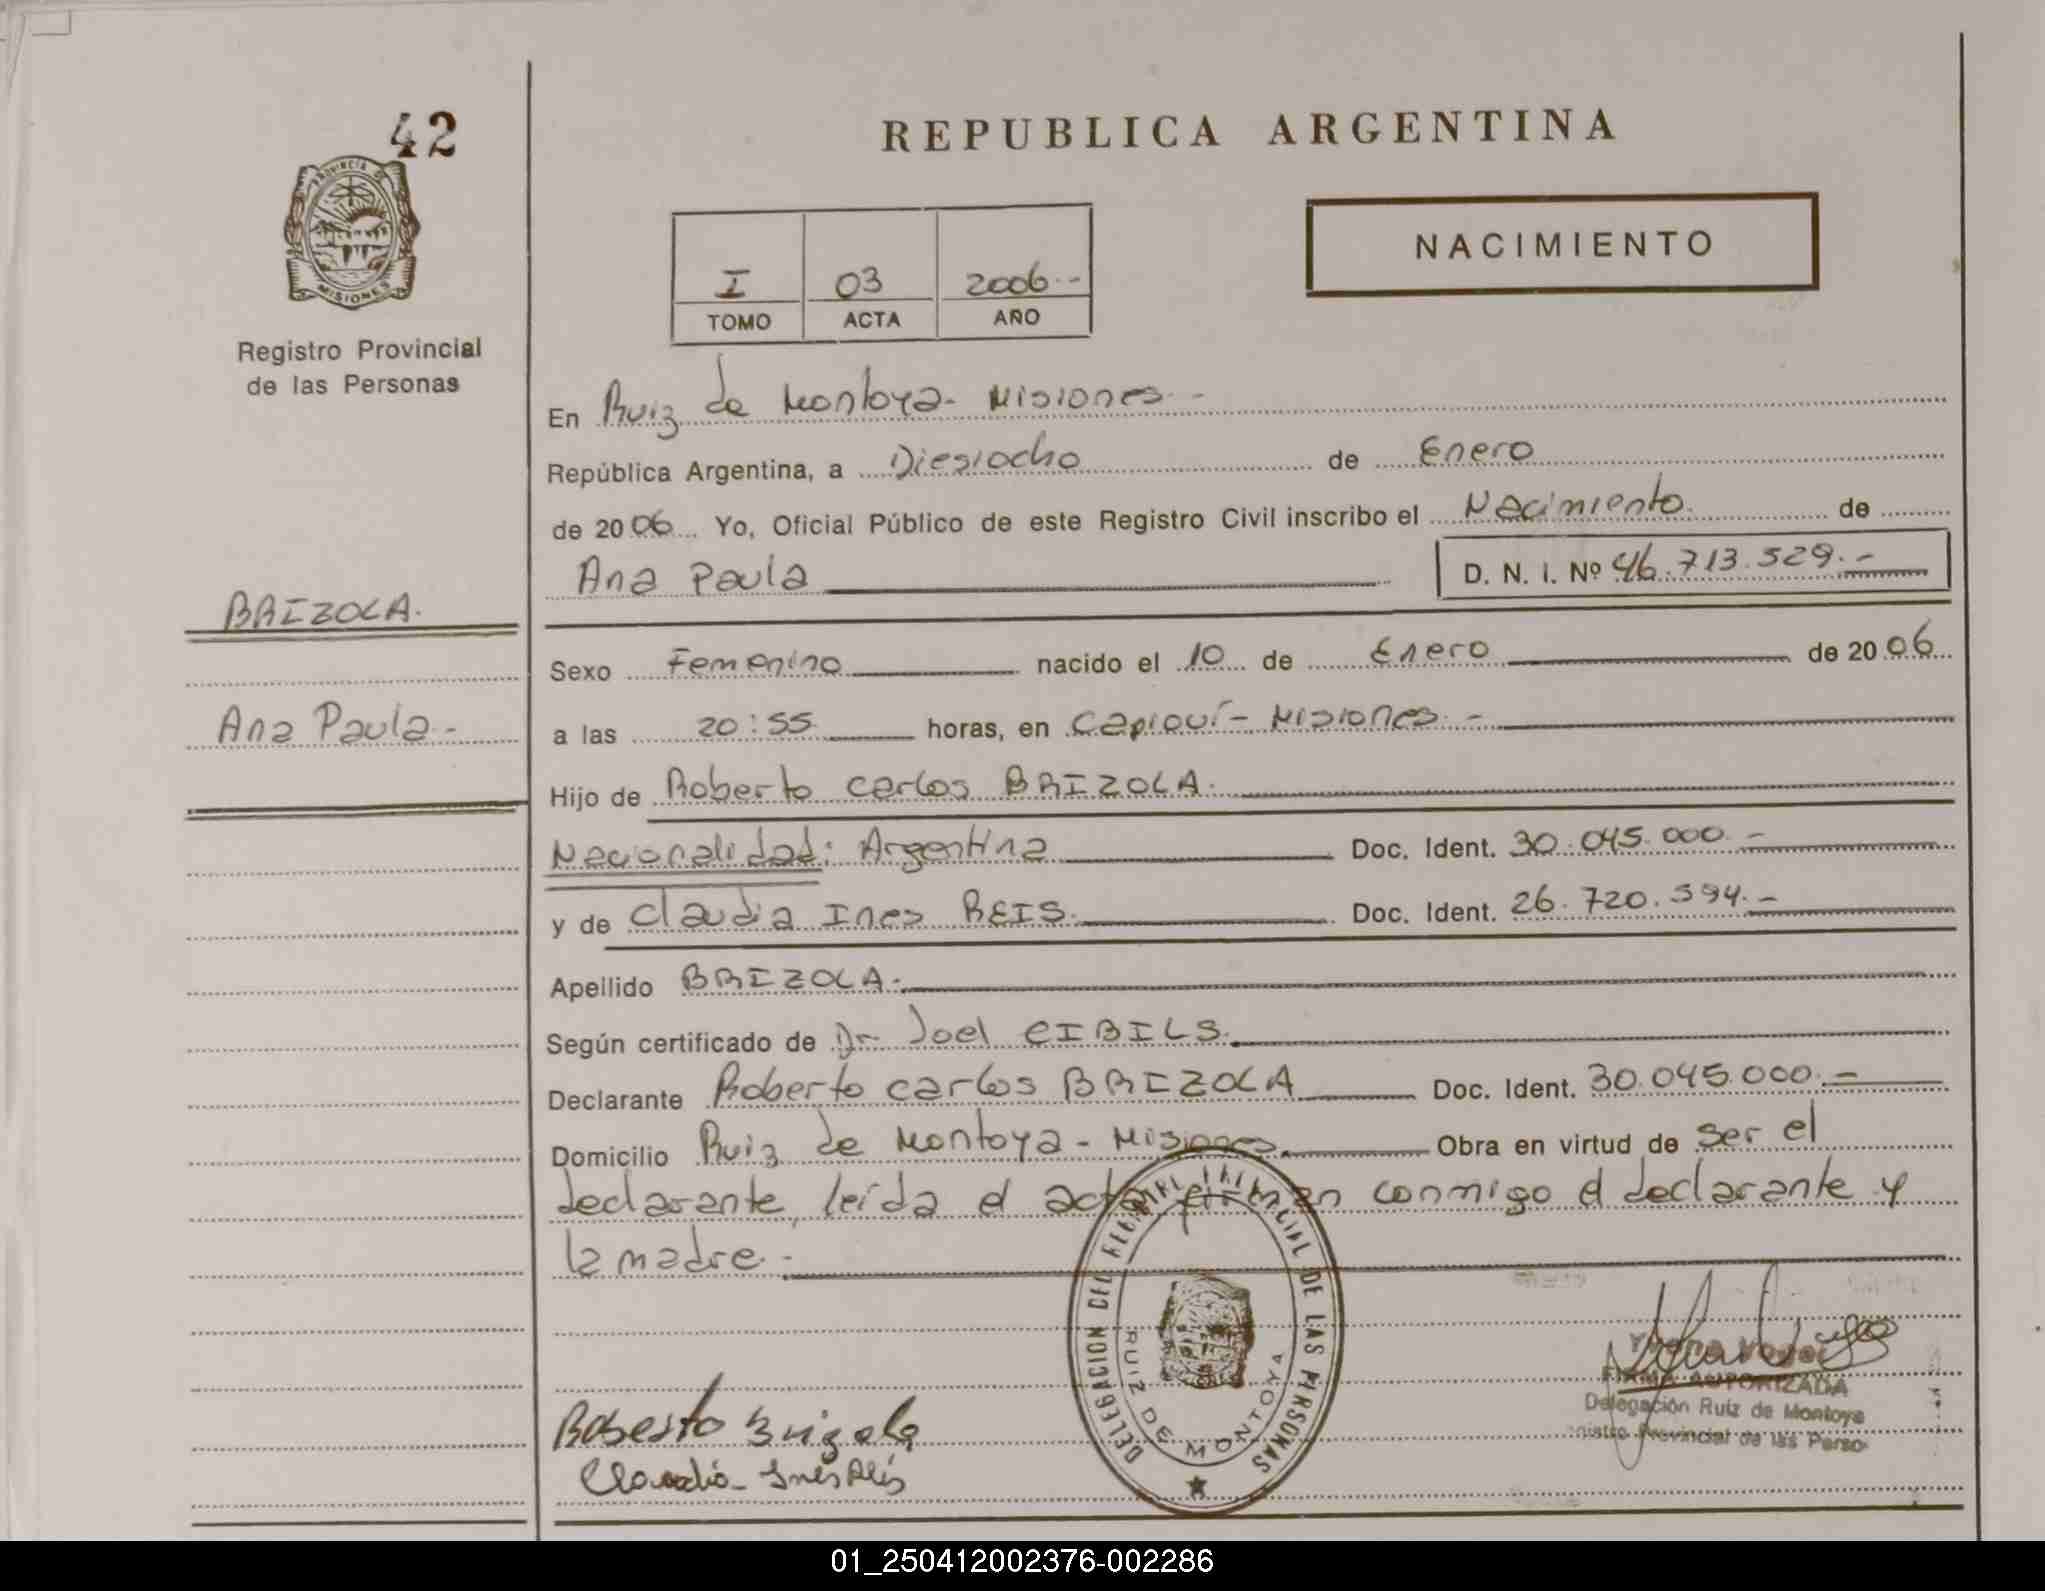 42
PROVINCIA DE
MISIONES
Registro Provincial
de las Personas
BRIZOLA.
Ana Paula.-
REPUBLICA ARGENTINA
NACIMIENTO
I 03 2006.-
TOMO ACTA AÑO
En Ruiz de Montoya - Misiones.-
República Argentina, a Diesiocho de Enero
de 2006 Yo, Oficial Público de este Registro Civil inscribo el Nacimiento de
Ana Paula D. N. I. Nº 46.713.529.-
Sexo Femenino nacido el 10 de Enero de 2006
a las 20:55 horas, en Capioví - Misiones.-
Hijo de Roberto Carlos BRIZOLA.
Nacionalidad: Argentina Doc. Ident. 30.045.000.-
y de Claudia Ines REIS. Doc. Ident. 26.720.594.-
Apellido BRIZOLA.
Según certificado de Dr. Joel CIBILS.
Declarante Roberto Carlos BRIZOLA Doc. Ident. 30.045.000.-
Domicilio Ruiz de Montoya - Misiones. Obra en virtud de ser el
declarante, leída el acta firman conmigo el declarante y
la madre.-
DELEGACION DEL REGISTRO PROVINCIAL DE LAS PERSONAS
RUIZ DE MONTOYA
FIRMA AUTORIZADA
Delegación Ruiz de Montoya
Provincial de las Perso
Roberto Brizola
Claudia Inés
01_250412002376-002286